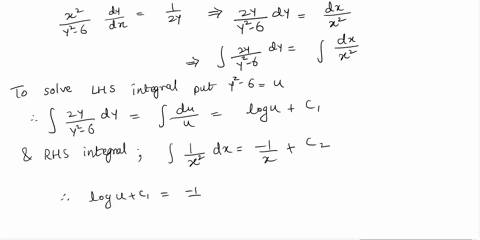 x²/(y²-6) dy/dx = 1/2y ⇒ 2y/(y²-6) dy = dx/x²
⇒ ∫ 2y/(y²-6) dy = ∫ dx/x²
To solve LHS integral put y²-6 = u
∴ ∫ 2y/(y²-6) dy = ∫ du/u = log u + C₁
& RHS integral; ∫ 1/x² dx = -1/x + C₂
∴ log u + C₁ = -1